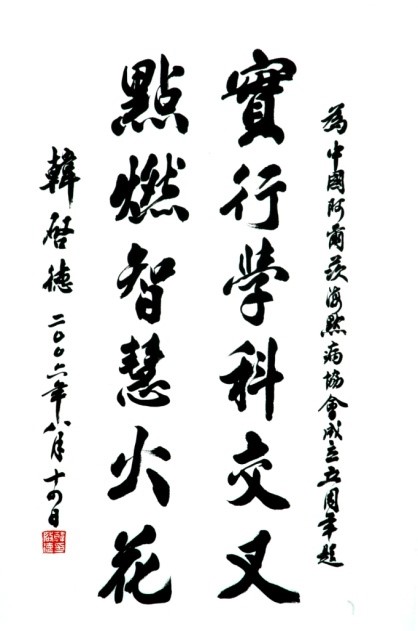 為中國阿爾茨海默病協會成立五周年題
實行學科交叉
點燃智慧火花
韓啓德 二〇〇六年八月十四日